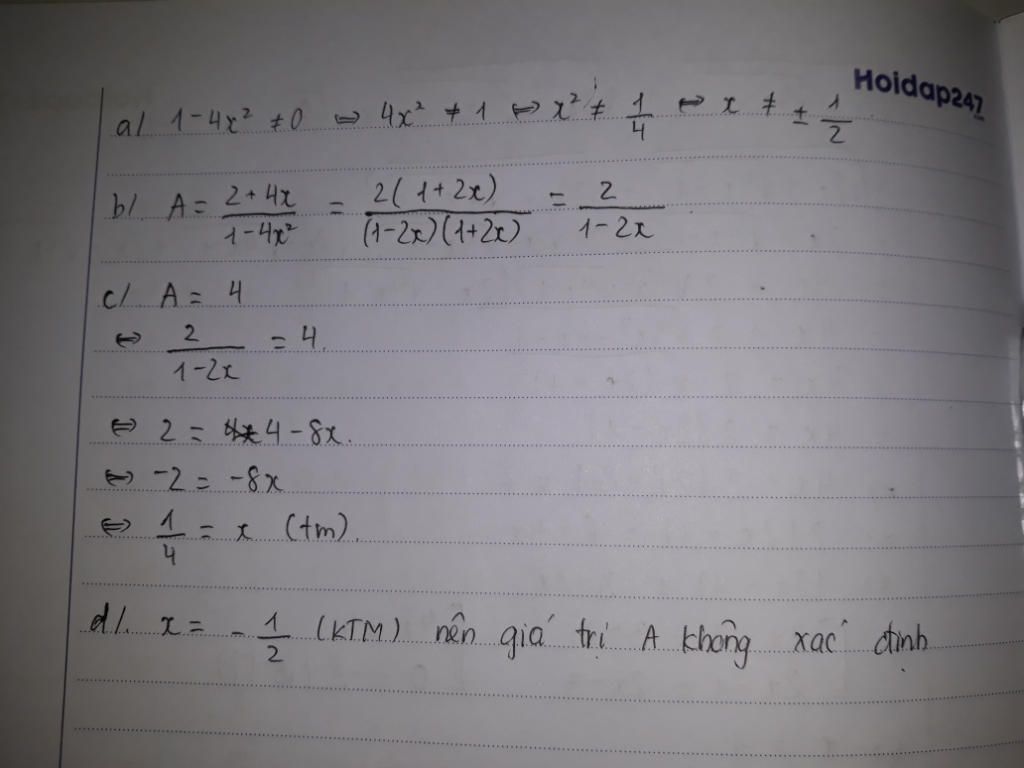 Hoidap247
a/ 1-4x² ≠0 ⇔ 4x² ≠ 1 ⇔ x² ≠ 1/4 ⇔ x ≠ ± 1/2
b/ A = (2+4x)/(1-4x²) = 2(1+2x)/((1-2x)(1+2x)) = 2/(1-2x)
c/ A = 4
⇔ 2/(1-2x) = 4.
⇔ 2 = 4-8x.
⇔ -2 = -8x
⇔ 1/4 = x (tm).
d/. x = -1/2 (KTM) nên giá trị A không xác định